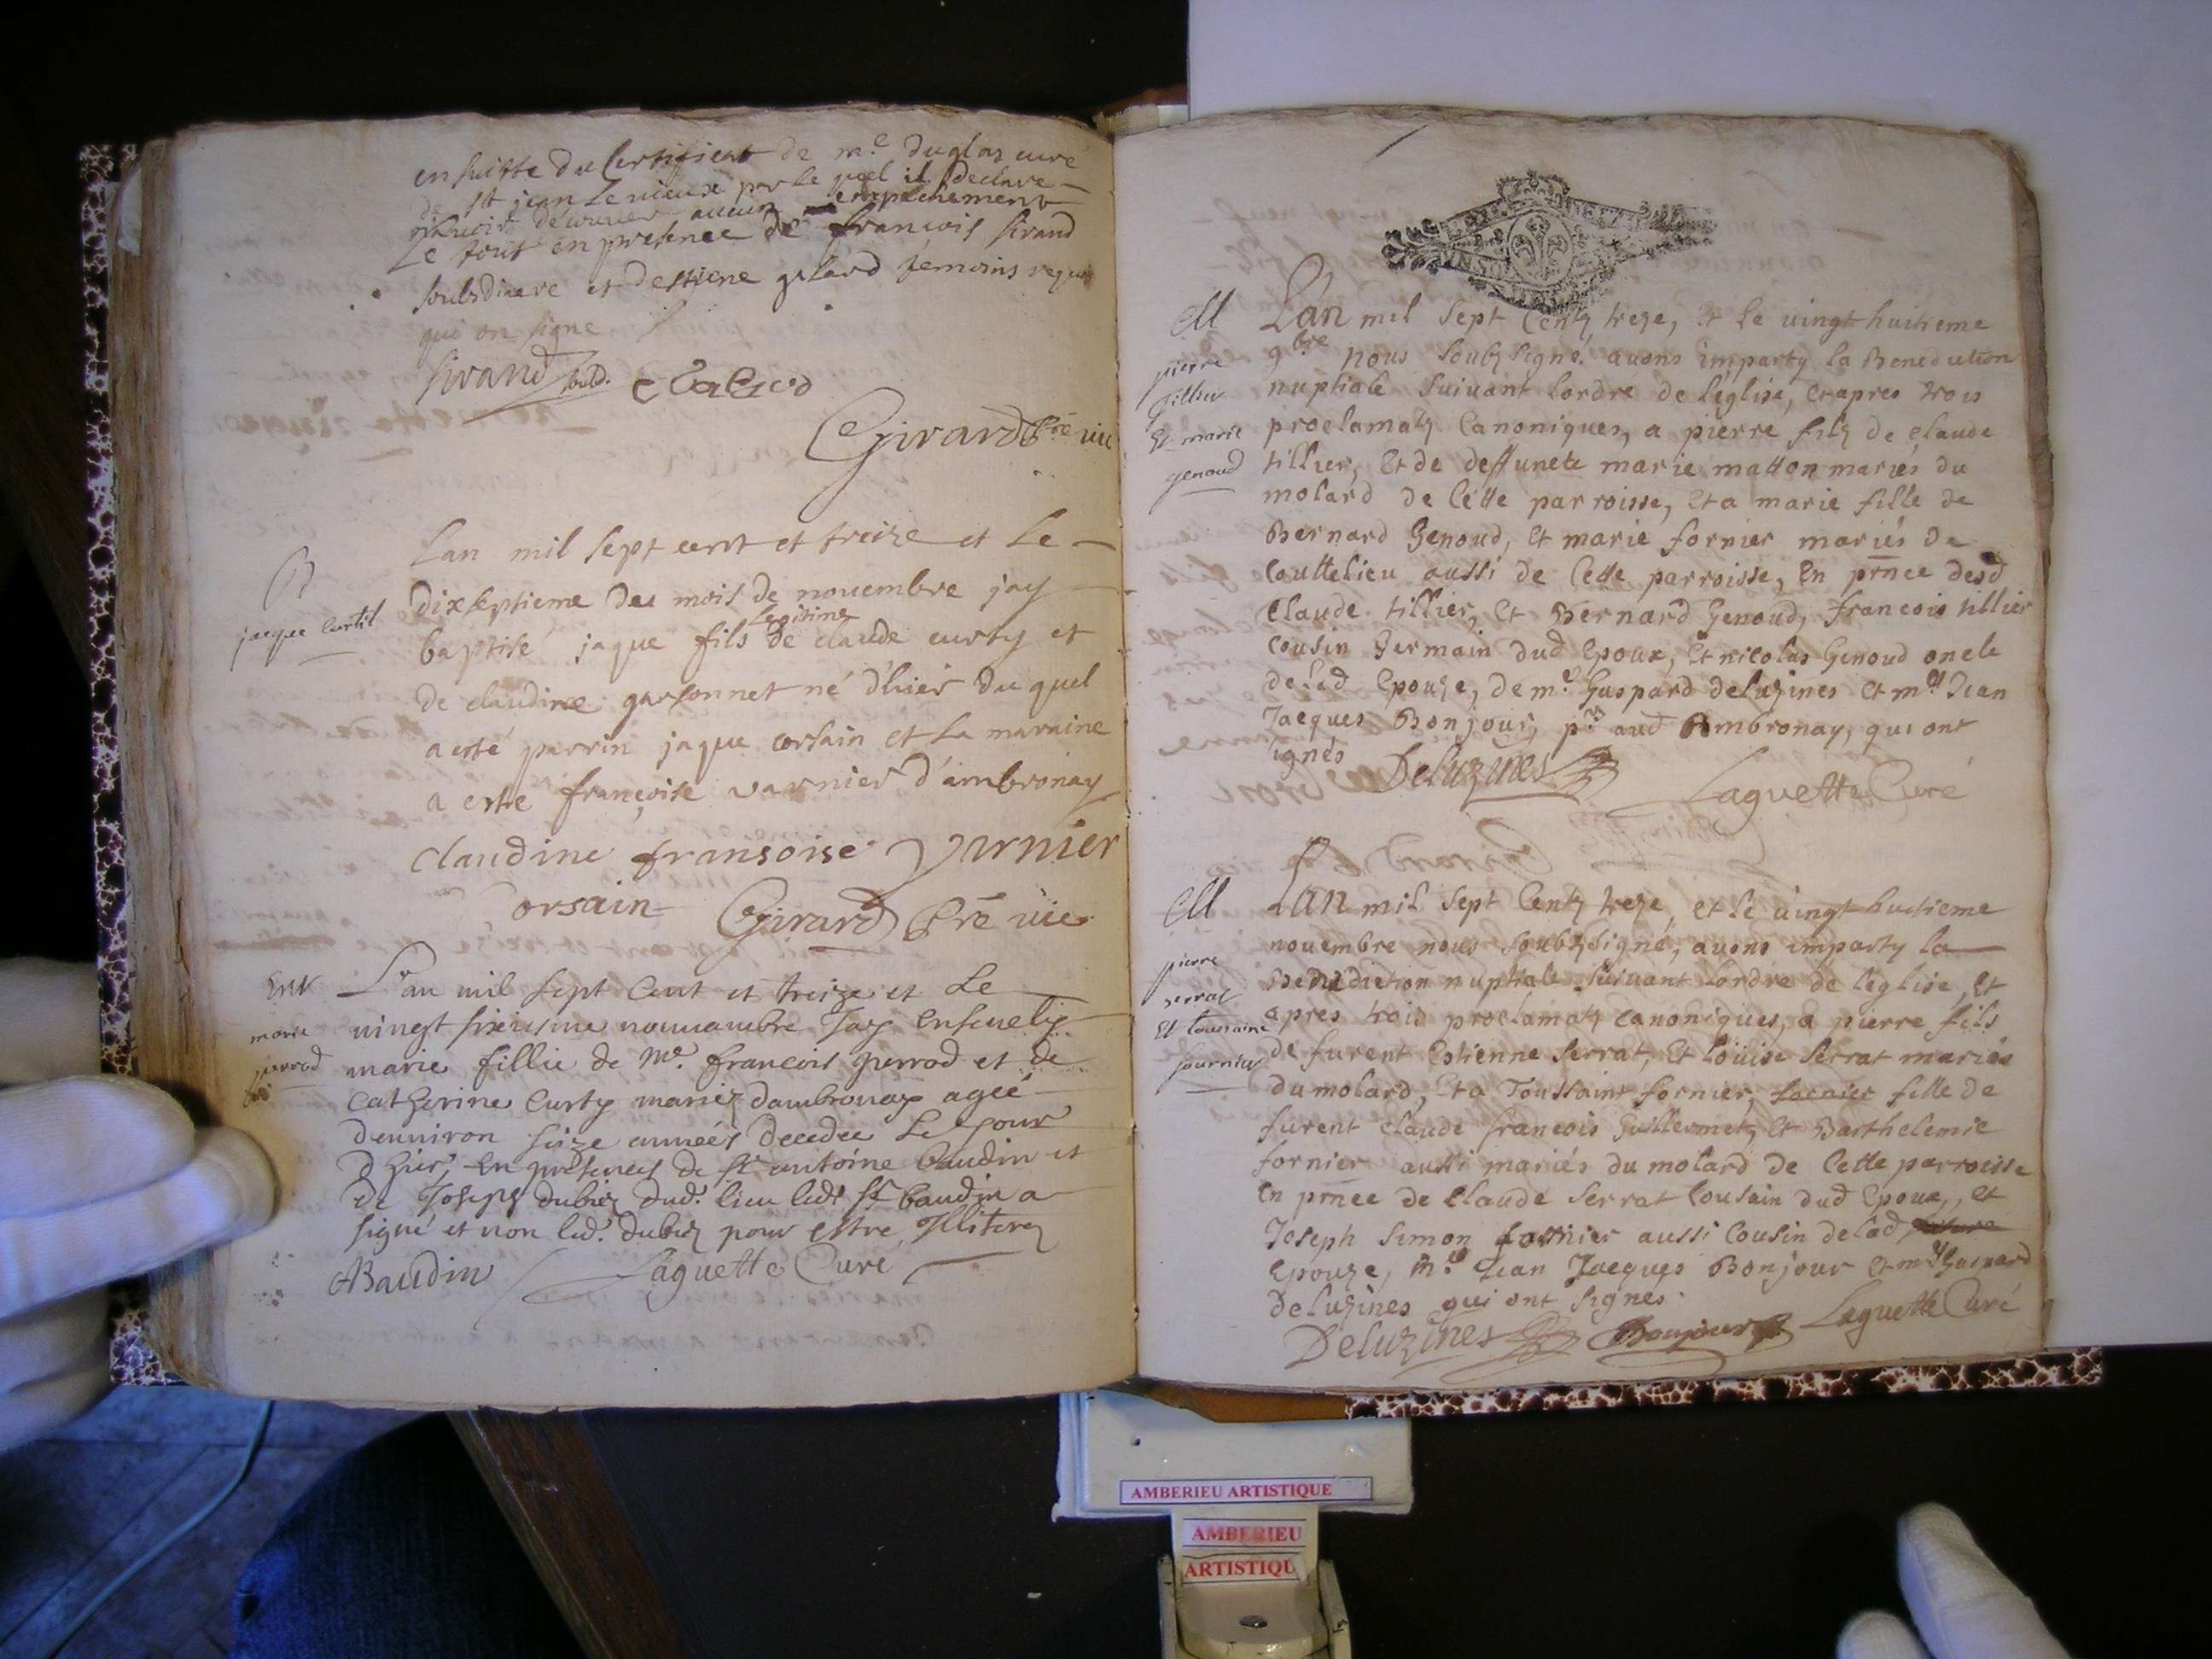 ensuitte du Certificat de m.e duglas curé
de st jean le vieux par le quel il declare
navoir decouvert aucun empechement
Le tout en presence de françois sirand
soubsdiacre et destiene galard temoins requis
qui on signe
Sirand soubd.
Girard Ptre vic
B
jacque curtil
Lan mil sept cent et treize et le
dixseptieme du mois de novembre jay
baptisé jaque fils legitime de claude curty et
de claudine garsonnet né d'hier du quel
a esté parrin jaque corsain et la maraine
a esté françoise varnier d'ambronay
Claudine fransoise varnier
Corsain Girard Ptre vic
Ent
marie
perrod
L'an mil sept Cent et treize et le
vingt sixiesme nouuambre Jay Ensevely
marie fillie de Me. francois perrod et de
Catherine Curty mariez dambronay agée
denuiron seize années decedee le jour
d hier, En presences de sr antoine baudin et
de Joseph dubiez dud. lieu led. sr baudin a
signé et non led. dubiez pour estre Illiterez
ABaudin Laguette Curé
M
pierre
tillier
Et marie
genoud
Lan mil sept Centz treze, Et le vingt huitieme
9bre nous soubzsigné avons imparty la Benediction
nuptiale suivant lordre de l'eglise, Et apres trois
proclamatz Canoniques, a pierre filz de claude
tillier, Et de deffuncte marie matton mariés du
molard de Cette parroisse, Et a marie fille de
Bernard Genoud, Et marie fornier mariés de
Couttelieu aussi de Cette parroisse, En prnce desd
Claude tillier, Et Bernard Genoud, francois tillier
Cousin Germain dud Epoux, Et nicolas Genoud oncle
de lad Epouze, de me Gaspard deluzines Et me Jean
Jacques Bonjour, prs aud Ambronay, qui ont
signés Deluzines Laguette Curé
M
pierre
serrat
Et toussaine
fournier
Lan mil sept Centz treze, et le vingt huitieme
novembre nous soubzsigné, avons imparty la
Benediction nuptiale suivant lordre de l'eglise, Et
apres trois proclamatz canoniques, a pierre fils
de furent Estienne Serrat, Et Loüise Serrat mariés
du molard, Et a Toussaint fornier, fornier fille de
furent claude francois Guillermet, Et Barthelemie
fornier aussi mariés du molard de Cette parroisse
En prnce de Claude Serrat Cousain dud Epoux, et
Joseph Simon fornier aussi Cousin de lad
Epouze, me Jean Jacques Bonjour Et me Gaspard
deluzines qui ont signés.
Deluzines Bonjour Laguette Curé
AMBERIEU ARTISTIQUE
AMBERIEU
ARTISTIQU